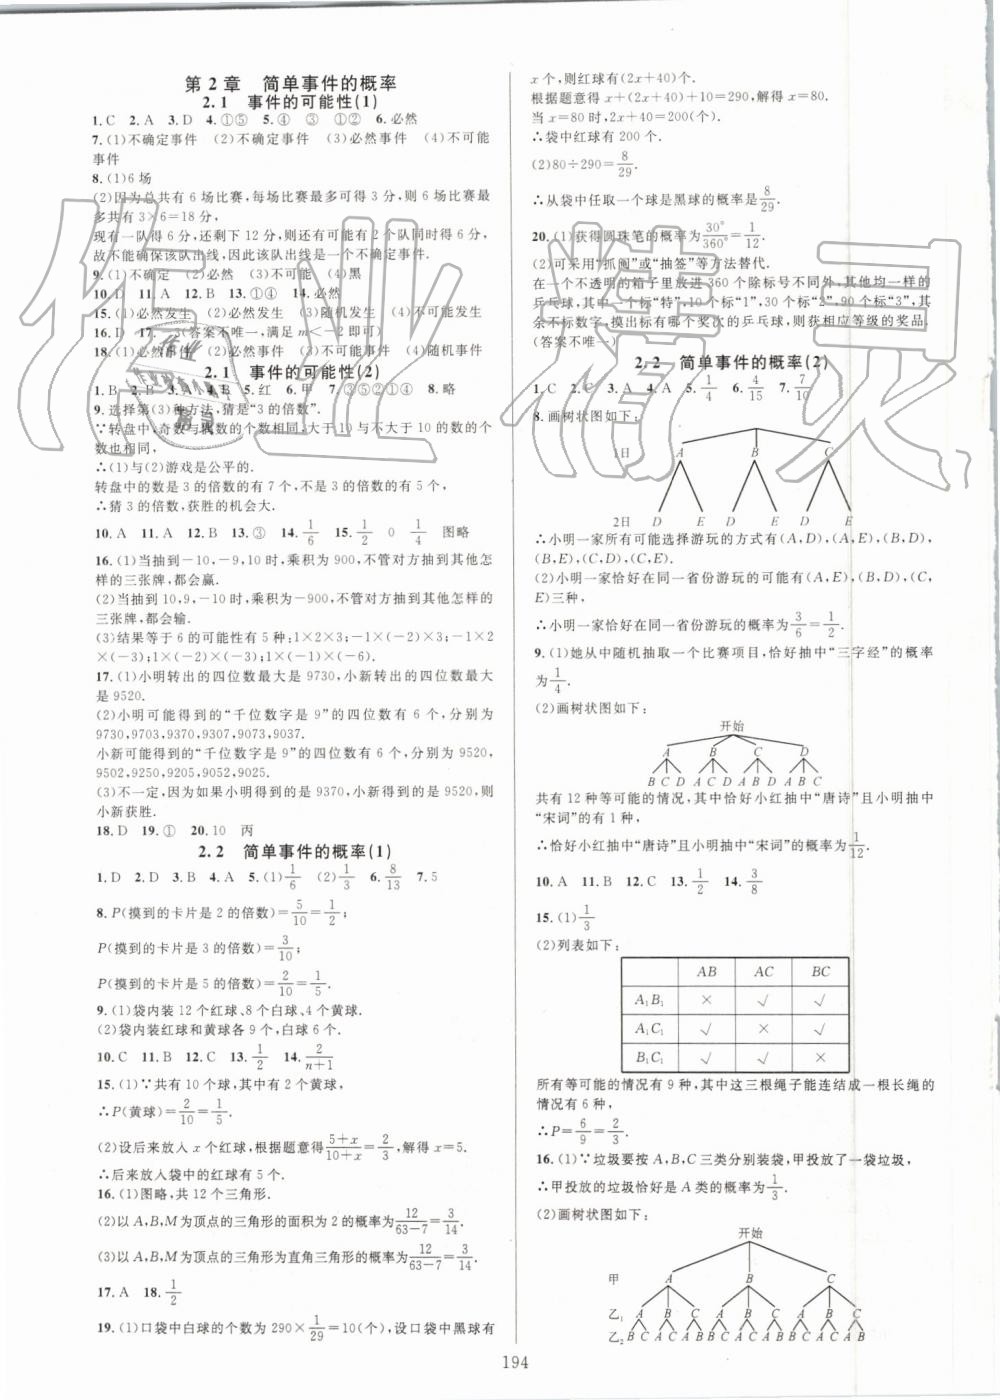 第2章 简单事件的概率
2.1 事件的可能性(1)
1.C 2.A 3.D 4.①⑤ 5.④ ③ ①② 6.必然
7.(1)不确定事件 (2)不确定事件 (3)必然事件 (4)不可能
事件
8.(1)6场
(2)因为总共有6场比赛,每场比赛最多可得3分,则6场比赛
共有3×6=18分,
现有一队得6分,还剩下12分,则还有可能有2个队同时得6分,
故不能确保该队出线,因此该队出线是一个不确定事件.
9.(1)不确定 (2)必然 (3)不可能 (4)黑
10.D 11.A 12.B 13.①④ 14.必然
15.(1)必然发生 (2)必然发生 (3)随机发生 (4)不可能发生
16.D 17.-3(答案不唯一,满足m<-2即可)
18.(1)必然事件 (4)随机事件
2.1 事件的可能性(2)
1.B 2.B 3.A 4.B 5.红 6.甲 7.③⑤②①④ 8.略
9.选择第(3)种方法,猜是“3的倍数”.
∵转盘中,奇数与偶数的个数相同,大于10与不大于10的数的个
数也相同,
∴(1)与(2)游戏是公平的.
转盘中的数是3的倍数的有7个,不是3的倍数的有5个,
∴猜3的倍数,获胜的机会大.
10.A 11.A 12.B 13.③ 14.1/6 15.1/2 0 1/4 图略
16.(1)当抽到-10,-9,10时,乘积为900,不管对方抽到其他怎
样的三张牌,都会赢.
(2)当抽到10,9,-10时,乘积为-900,不管对方抽到其他怎样的
三张牌,都会输.
(3)结果等于6的可能性有5种:1×2×3;-1×(-2)×3;-1×2
×(-3);1×(-2)×(-3);1×(-1)×(-6).
17.(1)小明转出的四位数最大是9730,小新转出的四位数最大
是9520.
(2)小明可能得到的“千位数字是9”的四位数有6个,分别为
9730,9703,9370,9307,9073,9037.
小新可能得到的“千位数字是9”的四位数有6个,分别为9520,
9502,9250,9205,9052,9025.
(3)不一定,因为如果小明得到的是9370,小新得到的是9520,则
小新获胜.
18.D 19.① 20.10 丙
2.2 简单事件的概率(1)
1.D 2.D 3.B 4.A 5.(1)1/6 (2)1/3 6.8/13 7.5
8.P(摸到的卡片是2的倍数)=5/10=1/2;
P(摸到的卡片是3的倍数)=3/10;
P(摸到的卡片是5的倍数)=2/10=1/5.
9.(1)袋内装12个红球、8个白球、4个黄球.
(2)袋内装红球和黄球各9个,白球6个.
10.C 11.B 12.C 13.1/2 14.2/(n+1)
15.(1)∵共有10个球,其中有2个黄球,
∴P(黄球)=2/10=1/5.
(2)设后来放入x个红球,根据题意得(5+x)/(10+x)=2/3,解得x=5.
∴后来放入袋中的红球有5个.
16.(1)图略,共12个三角形.
(2)以A,B,M为顶点的三角形的面积为2的概率为12/(63-7)=3/14.
(3)以A,B,M为顶点的三角形为直角三角形的概率为12/(63-7)=3/14.
17.A 18.1/2
19.(1)口袋中白球的个数为290×1/29=10(个),设口袋中黑球有
x个,则红球有(2x+40)个.
根据题意得x+(2x+40)+10=290,解得x=80.
当x=80时,2x+40=200(个).
∴袋中红球有200个.
(2)80÷290=8/29.
∴从袋中任取一个球是黑球的概率是8/29.
20.(1)获得圆珠笔的概率为30°/360°=1/12.
(2)可采用“抓阄”或“抽签”等方法替代.
在一个不透明的箱子里放进360个除标号不同外,其他均一样的
乒乓球,其中一个标“特”,10个标“1”,30个标“2”,90个标“3”,其
余不标数字,摸出标有哪个奖次的乒乓球,则获相应等级的奖品.
(答案不唯一)
2.2 简单事件的概率(2)
1.C 2.C 3.A 4.A 5.1/4 6.4/15 7.7/10
8.画树状图如下:
1日 A B C
2日 D E D E D E
∴小明一家所有可能选择游玩的方式有(A,D),(A,E),(B,D),
(B,E),(C,D),(C,E).
(2)小明一家恰好在同一省份游玩的可能有(A,E),(B,D),(C,
E)三种,
∴小明一家恰好在同一省份游玩的概率为3/6=1/2.
9.(1)她从中随机抽取一个比赛项目,恰好抽中“三字经”的概率
为1/4.
(2)画树状图如下:
开始
A B C D
B C D A C D A B D A B C
共有12种等可能的情况,其中恰好小红抽中“唐诗”且小明抽中
“宋词”的有1种,
∴恰好小红抽中“唐诗”且小明抽中“宋词”的概率为1/12.
10.A 11.B 12.C 13.1/2 14.3/8
15.(1)1/3
(2)列表如下:
AB AC BC
A₁B₁ × √ √
A₁C₁ √ × √
B₁C₁ √ √ ×
所有等可能的情况有9种,其中这三根绳子能连结成一根长绳的
情况有6种,
∴P=6/9=2/3.
16.(1)∵垃圾要按A,B,C三类分别装袋,甲投放了一袋垃圾,
∴甲投放的垃圾恰好是A类的概率为1/3.
(2)画树状图如下:
开始
甲 A B C
乙₁ A B C A B C A B C
乙₂ B C A C A B B C A C A B B C A C A B
194